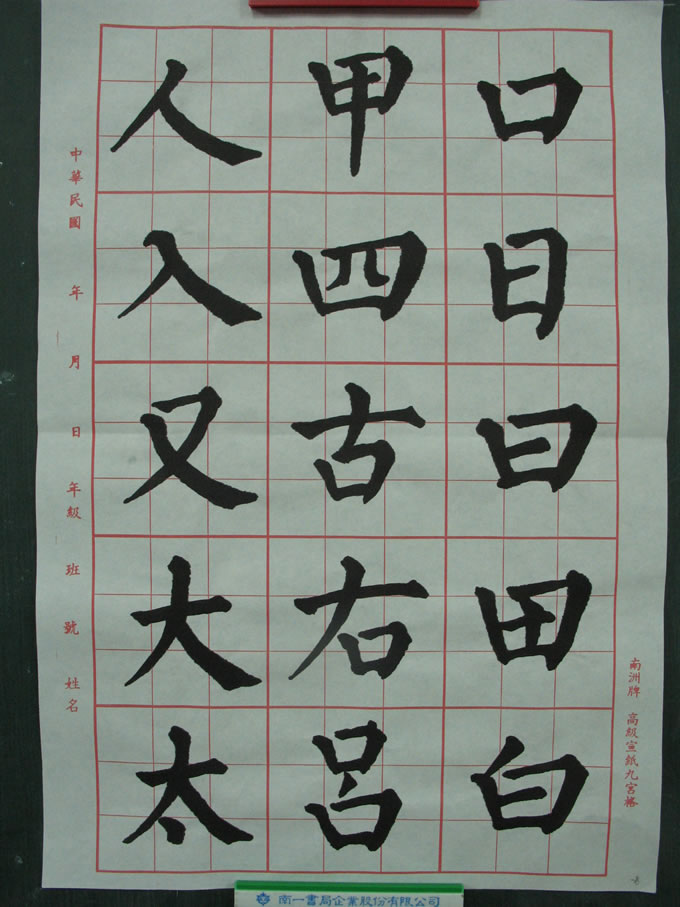 口日曰田白
甲四古右呂
人入又大太
中華民國 年 月 日 年級 班 號 姓名
南洲牌 高級宣紙九宮格
南一書局企業股份有限公司